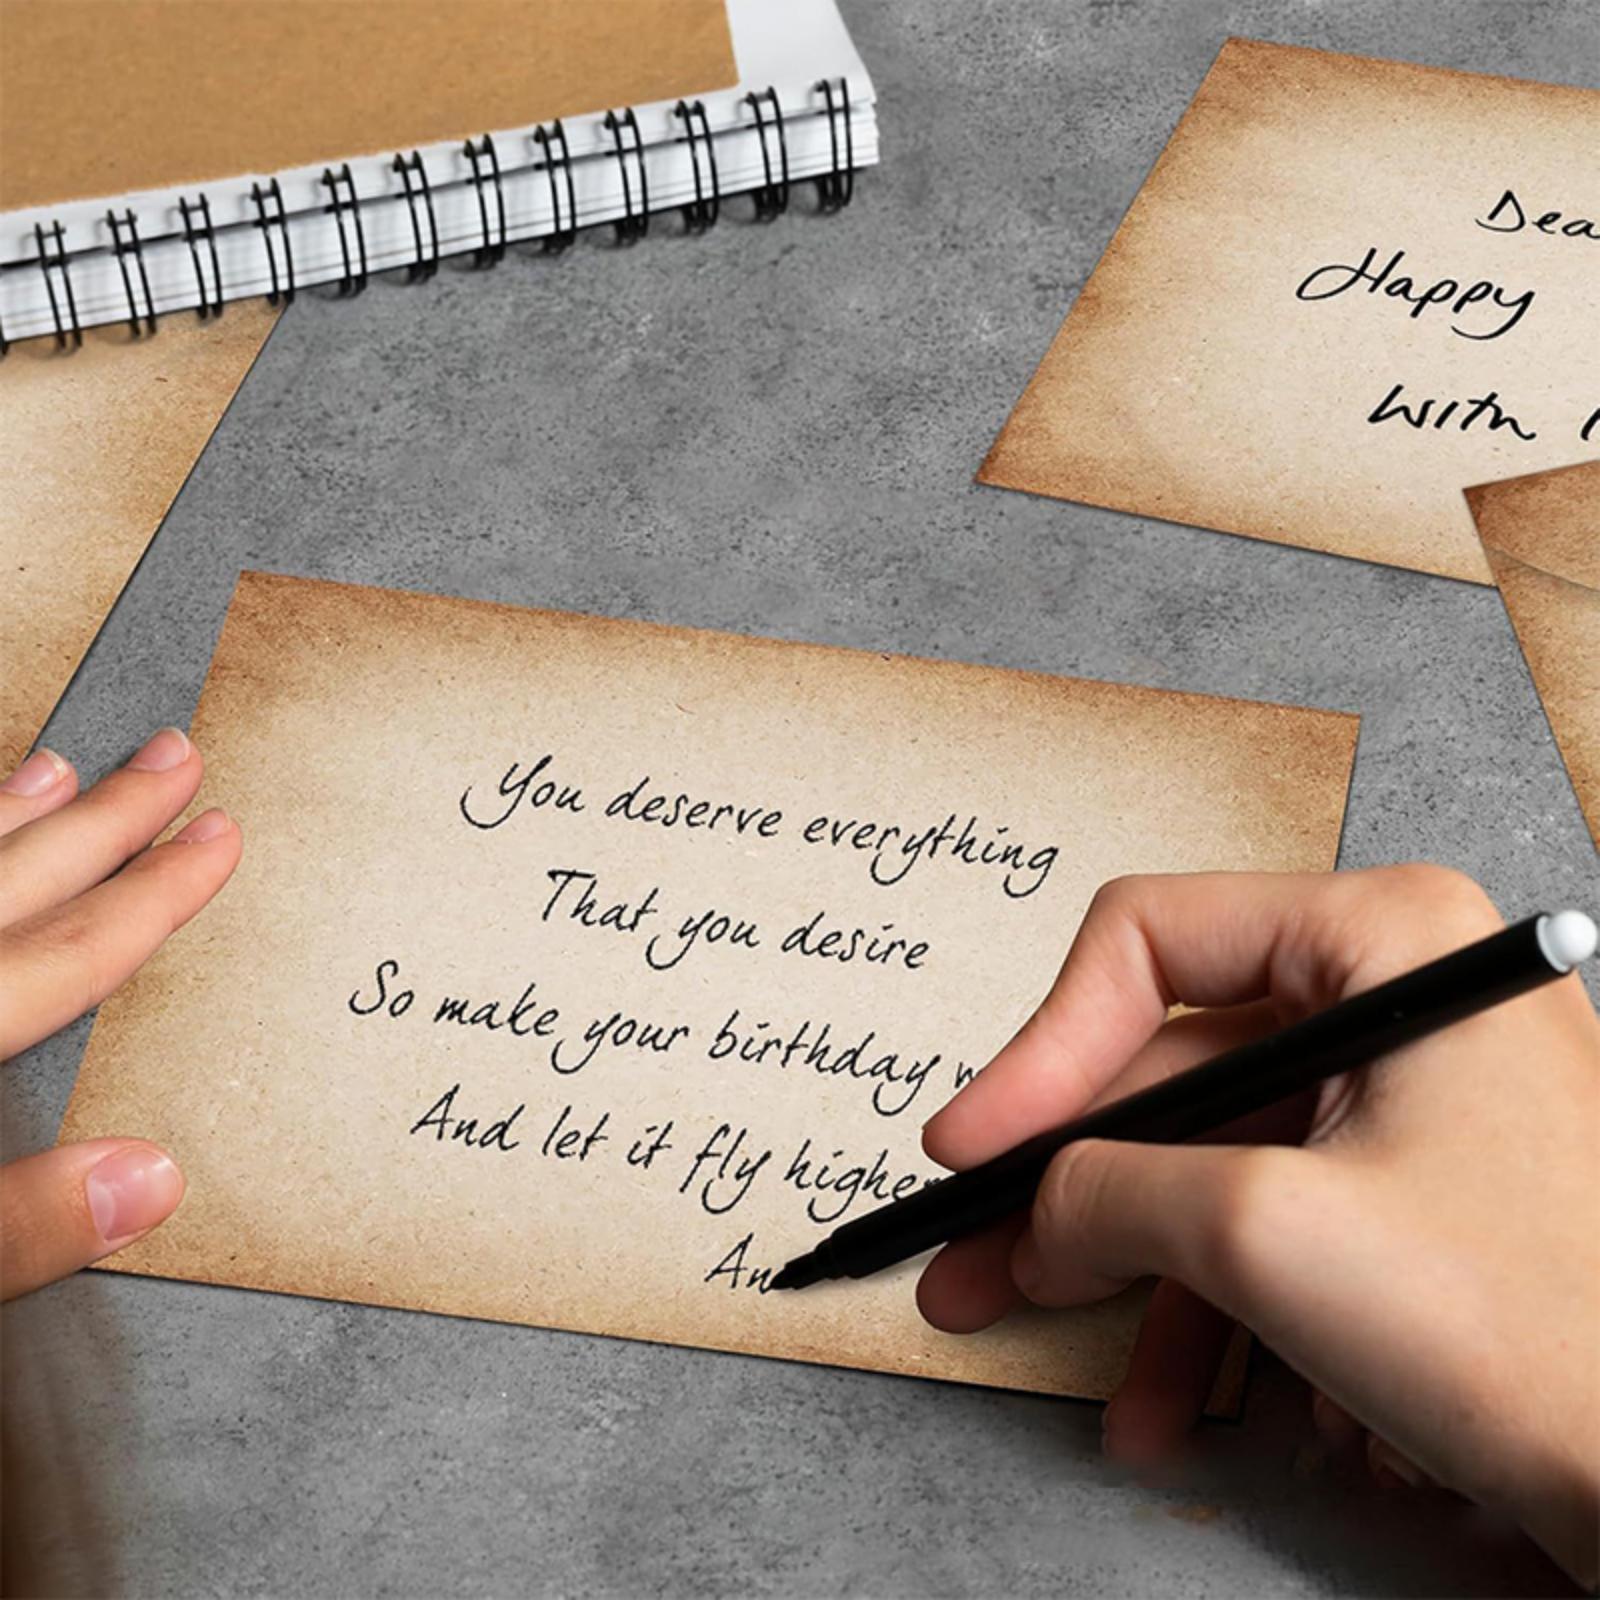 Dea
Happy
with
You deserve everything
That you desire
So make your birthday
And let it fly higher
An